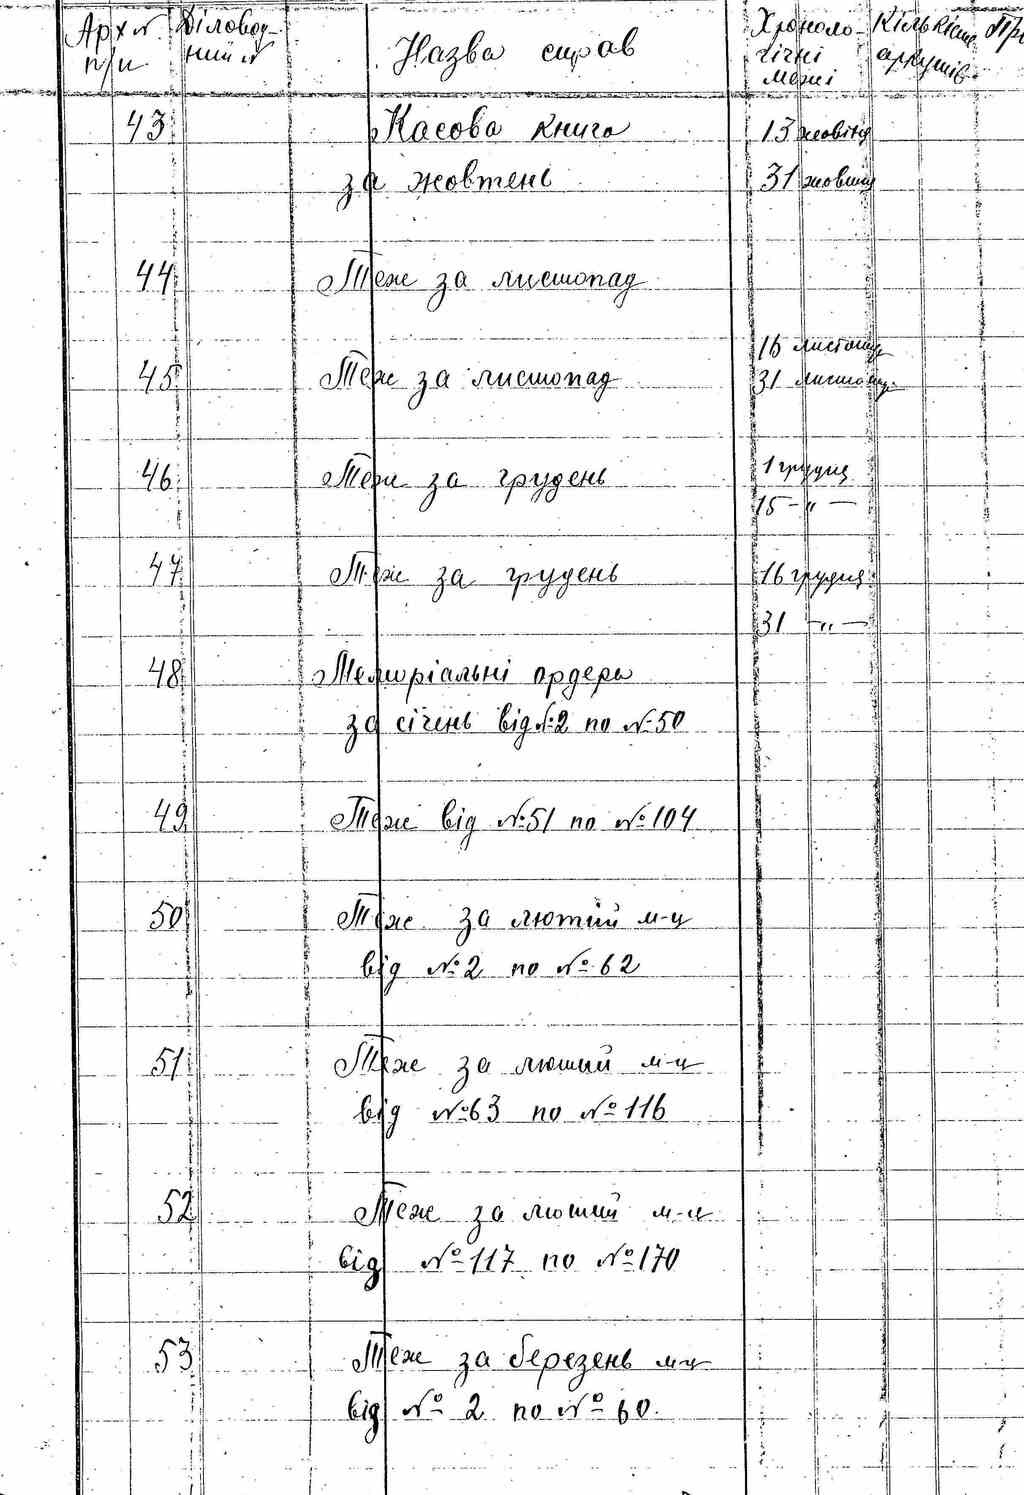 Арх № Діловод- Назва справ Хроноло- Кількість
п/п ний № гічні аркушів
межі
43 Касова книга 13 жовтня
за жовтень 31 жовтня
44 Теж за листопад
16 листопад
45 Теж за листопад 31 листопад
46 Теж за грудень 1 грудня
15 – „ –
47 Теж за грудень 16 грудня
31 – „ –
48 Меморіальні ордери
за січень від №2 по №50
49 Теж від №51 по №104
50 Теж за лютий м-ц
від №2 по №62
51 Теж за лютий м-ц
від №63 по №116
52 Теж за лютий м-ц
від №117 по №170
53 Теж за березень м-ц
від № 2 по № 60.